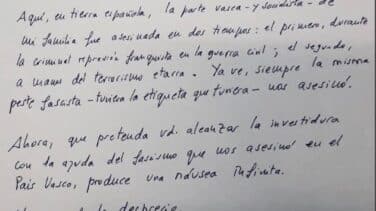 Aquí, en tierra española, la parte vasca -y socialista- de
mi familia fue asesinada en dos tiempos: el primero, durante
la criminal represión franquista en la guerra civil; el segundo,
a manos del terrorismo etarra. Ya ve, siempre la misma
peste fascista -tuviera la etiqueta que tuviera- nos asesinó.
Ahora, que pretenda vd. alcanzar la investidura
con la ayuda del fascismo que nos asesinó en el
País Vasco, produce una náusea infinita.
desprecio